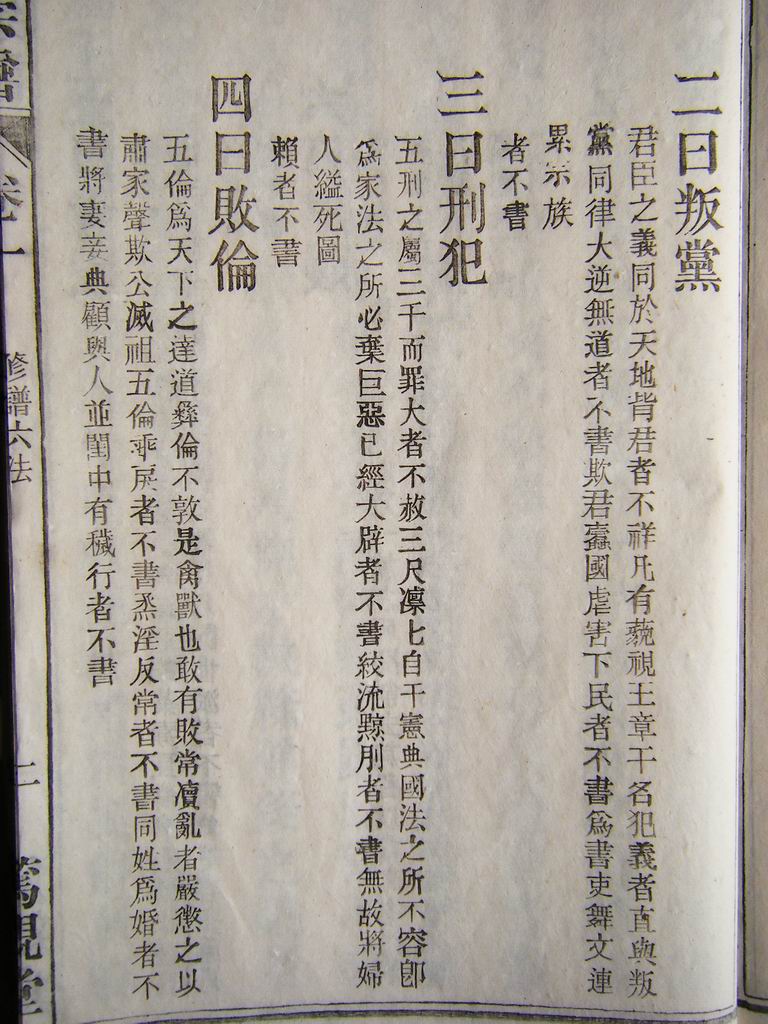 二曰叛黨
君臣之義同於天地背君者不祥凡有藐視王章干名犯義者直與叛
黨同律大逆無道者不書欺君蠹國虐害下民者不書爲書吏舞文連
累宗族
者不書
三曰刑犯
五刑之屬三千而罪大者不赦三尺凜七自干憲典國法之所不容卽
爲家法之所必棄巨惡已經大辟者不書絞流黥刖者不書無故將婦
人縊死圖
賴者不書
四曰敗倫
五倫爲天下之達道彝倫不敦是禽獸也敢有敗常瀆亂者嚴懲之以
肅家聲欺公滅祖五倫乖戾者不書烝淫反常者不書同姓爲婚者不
書將妻妾典顧與人並閨中有穢行者不書
宗譜
卷一
修譜六法
二